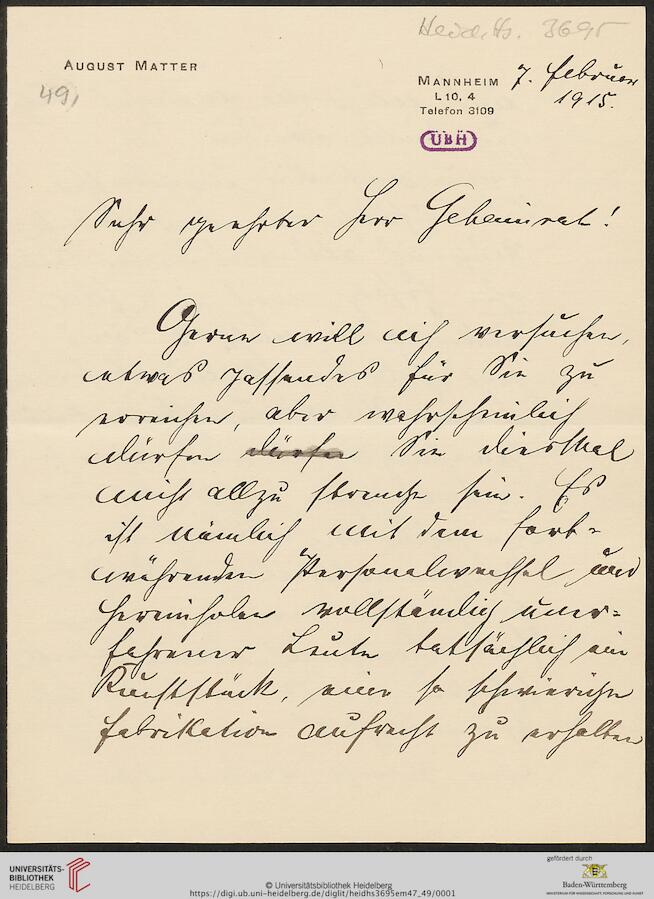 Heid. Hs. 3695
AUGUST MATTER
49,
MANNHEIM
L 10, 4
Telefon 3109
7. Februar
1915.
UBH
Sehr geehrter Herr Geheimrat!
Gerne will ich versuchen,
etwas passendes für Sie zu
erreichen, aber wahrscheinlich
dürfen dürfen Sie diesmal
nicht allzu strenge sein. Es
ist nämlich mit dem fort-
währenden Personalwechsel und
hereinholen vollständig uner-
fahrener Leute tatsächlich ein
Kunststück, eine so schwierige
Fabrikation aufrecht zu erhalten
UNIVERSITÄTS-
BIBLIOTHEK
HEIDELBERG
© Universitätsbibliothek Heidelberg
https://digi.ub.uni-heidelberg.de/diglit/heidhs3695em47_49/0001
gefördert durch
Baden-Württemberg
MINISTERIUM FÜR WISSENSCHAFT, FORSCHUNG UND KUNST